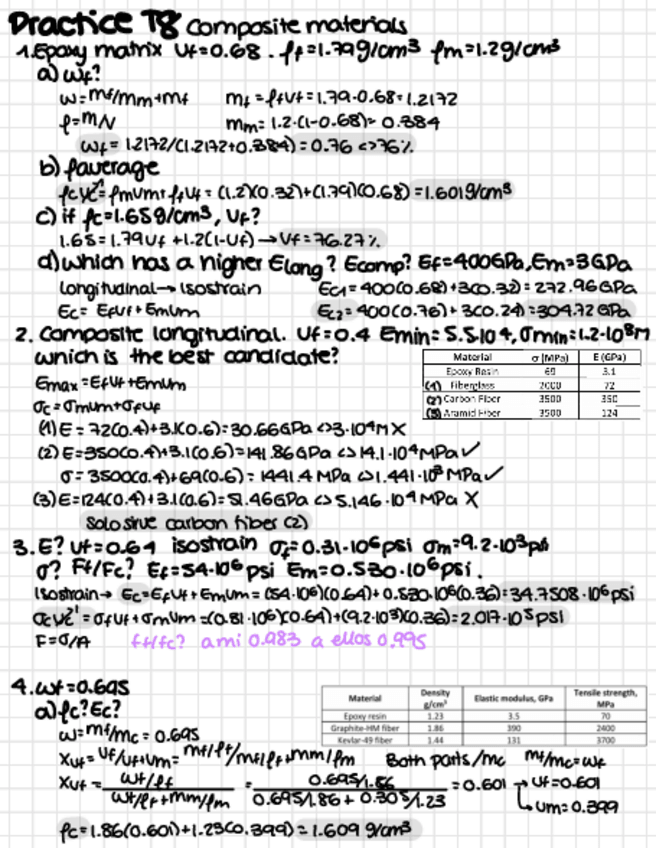 Practice T8 Composite materials
1. Epoxy matrix Vf=0.68. ρf=1.79g/cm³ ρm=1.2g/cm³
a) wf?
w=mf/mm+mf mf=ρfvf=1.79·0.68=1.2172
ρ=m/V mm=1.2·(1-0.68)=0.384
wf=1.2172/(1.2172+0.384)=0.76<>76%
b) ρaverage
ρcvc¹=ρmvm+ρfvf=(1.2)(0.32)+(1.79)(0.68)=1.601g/cm³
c) if ρc=1.65g/cm³, Vf?
1.65=1.79Vf+1.2(1-Vf)→Vf=76.27%
d) which has a higher Elong? Ecomp? Ef=400GPa, Em=3GPa
longitudinal→isostrain Ec1=400(0.68)+3(0.32)=272.96GPa
Ec=EfVf+EmVm Ec2=400(0.76)+3(0.24)=304.72GPa
2. Composite longitudinal. Vf=0.4 Emin=5.5·10⁴, σmin=1.2·10³M
which is the best candidate?
Material σ (MPa) E (GPa)
Epoxy Resin 69 3.1
(1) Fiberglass 2000 72
(2) Carbon Fiber 3500 350
(3) Aramid Fiber 3500 124
Emax=EfVf+EmVm
σc=σmVm+σfVf
(1) E=72(0.4)+3.1(0.6)=30.66GPa<>3·10⁴M X
(2) E=350(0.4)+3.1(0.6)=141.86GPa<>14.1·10⁴MPa✓
σ=3500(0.4)+69(0.6)=1441.4MPa<>1.441·10³MPa✓
(3) E=124(0.4)+3.1(0.6)=51.46GPa<>5.146·10⁴MPa X
Solo sirve carbon fiber (2)
3. E? Vf=0.64 isostrain σf=0.31·10⁶psi σm=9.2·10³psi
σ? Ff/Fc? Ef=54·10⁶psi Em=0.530·10⁶psi.
Isostrain→ Ec=EfVf+EmVm=(54·10⁶)(0.64)+0.530·10⁶(0.36)=34.7508·10⁶psi
σcVc¹=σfVf+σmVm=(0.31·10⁶)(0.64)+(9.2·10³)(0.36)=2.017·10⁵psi
F=σ/A ff/fc? a mi 0.983 a ellos 0.995
4. wf=0.695
a) ρc? Ec?
Material Density g/cm³ Elastic modulus, GPa Tensile strength, MPa
Epoxy resin 1.23 3.5 70
Graphite-HM fiber 1.86 390 2400
Kevlar-49 fiber 1.44 131 3700
w=mf/mc=0.695
Xvf=Vf/Vf+Vm=mf/ρf/mf/ρf+mm/ρm Both parts/mc mf/mc=wf
Xvf=wf/ρf/wf/ρf+mm/ρm=0.695/1.86/0.695/1.86+0.305/1.23=0.601→Vf=0.601
Vm=0.399
ρc=1.86(0.601)+1.23(0.399)=1.609g/cm³